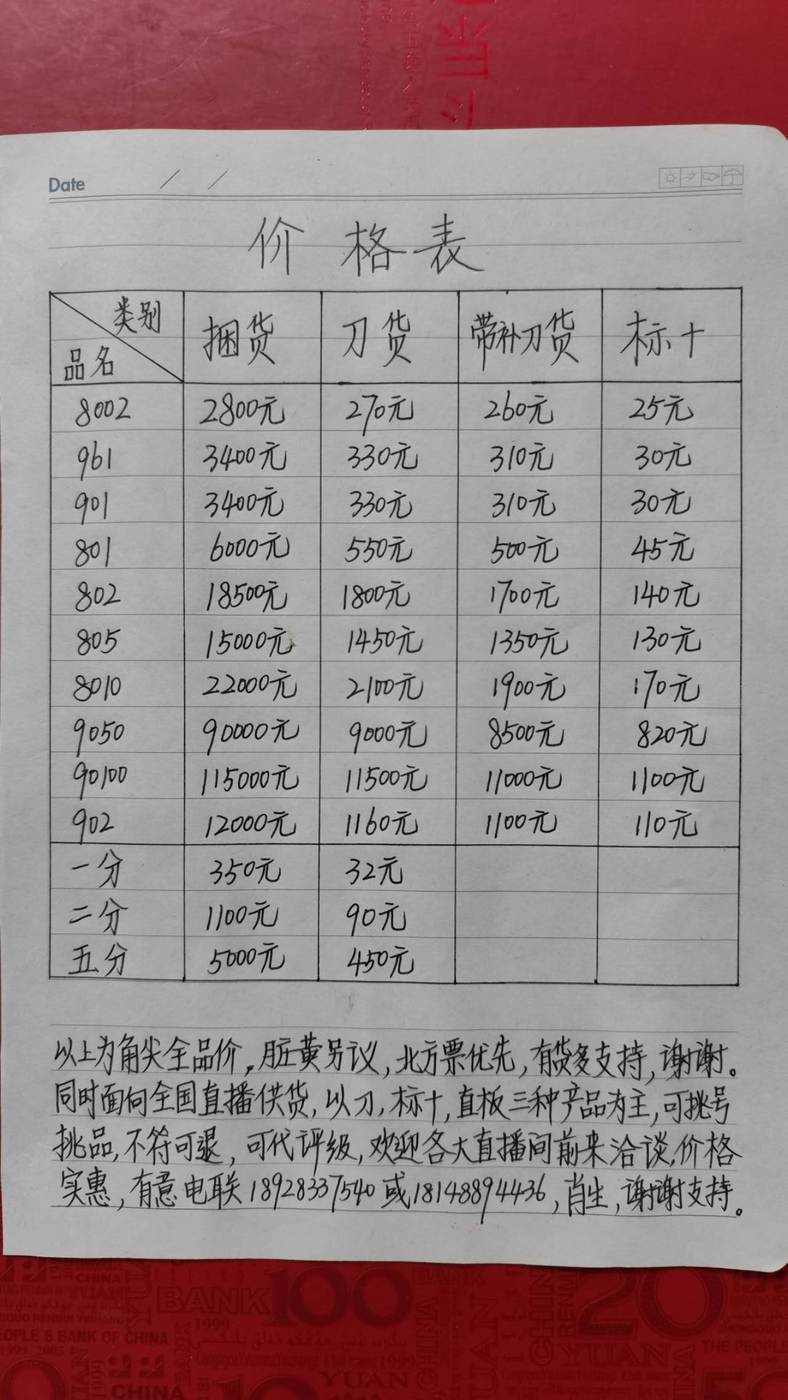 当
Date / /
价格表
类别 品名 捆货 刀货 带补刀货 标十
8002 2800元 270元 260元 25元
961 3400元 330元 310元 30元
901 3400元 330元 310元 30元
801 6000元 550元 500元 45元
802 18500元 1800元 1700元 140元
805 15000元 1450元 1350元 130元
8010 22000元 2100元 1900元 170元
9050 90000元 9000元 8500元 820元
90100 115000元 11500元 11000元 1100元
902 12000元 1160元 1100元 110元
一分 350元 32元
二分 1100元 90元
五分 5000元 450元
以上为角尖全品价，脏黄另议，北方票优先，有货多支持，谢谢。
同时面向全国直播供货，以刀，标十，直板三种产品为主，可挑号
挑品，不符可退，可代评级，欢迎各大直播间前来洽谈，价格
实惠，有意电联18928337540或18148894436，肖生，谢谢支持。
CHINA
YUAN
BANK 100
1999
20
YUAN
PEOPLE'S BANK OF CHINA
THE PEOPLE
YUAN